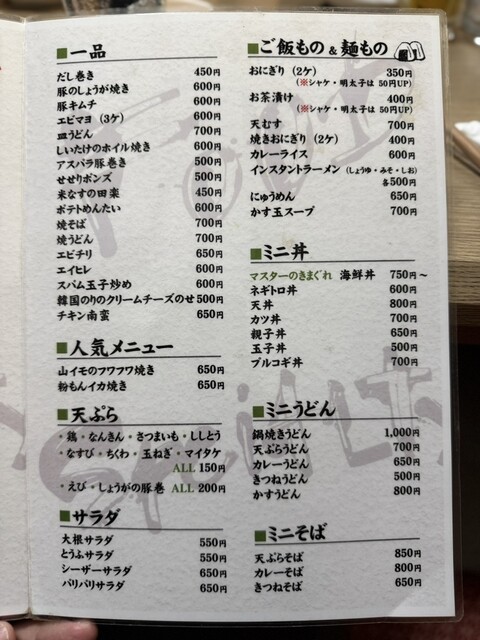 ■一品
だし巻き 450円
豚のしょうが焼き 600円
豚キムチ 600円
エビマヨ（3ケ） 600円
皿うどん 700円
しいたけのホイル焼き 600円
アスパラ豚巻き 500円
せせりポンズ 500円
米なすの田楽 450円
ポテトめんたい 600円
焼そば 700円
焼うどん 700円
エビチリ 650円
エイヒレ 600円
スパム玉子炒め 600円
韓国のりのクリームチーズのせ 500円
チキン南蛮 650円
■人気メニュー
山イモのフワフワ焼き 650円
粉もんイカ焼き 650円
■天ぷら
・鶏・なんきん・さつまいも・ししとう
・なすび・ちくわ・玉ねぎ・マイタケ
ALL 150円
・えび・しょうがの豚巻 ALL 200円
■サラダ
大根サラダ 550円
とうふサラダ 550円
シーザーサラダ 650円
パリパリサラダ 650円
■ご飯もの & 麺もの
おにぎり（2ケ） 350円
（※シャケ・明太子は 50円UP）
お茶漬け 400円
（※シャケ・明太子は 50円UP）
天むす 700円
焼きおにぎり（2ケ） 400円
カレーライス 600円
インスタントラーメン（しょうゆ・みそ・しお）
各500円
にゅうめん 650円
かす玉スープ 700円
■ミニ丼
マスターのきまぐれ 海鮮丼 750円〜
ネギトロ丼 600円
天丼 800円
カツ丼 700円
親子丼 650円
玉子丼 500円
プルコギ丼 700円
■ミニうどん
鍋焼きうどん 1,000円
天ぷらうどん 700円
カレーうどん 650円
きつねうどん 500円
かすうどん 800円
■ミニそば
天ぷらそば 850円
カレーそば 800円
きつねそば 650円